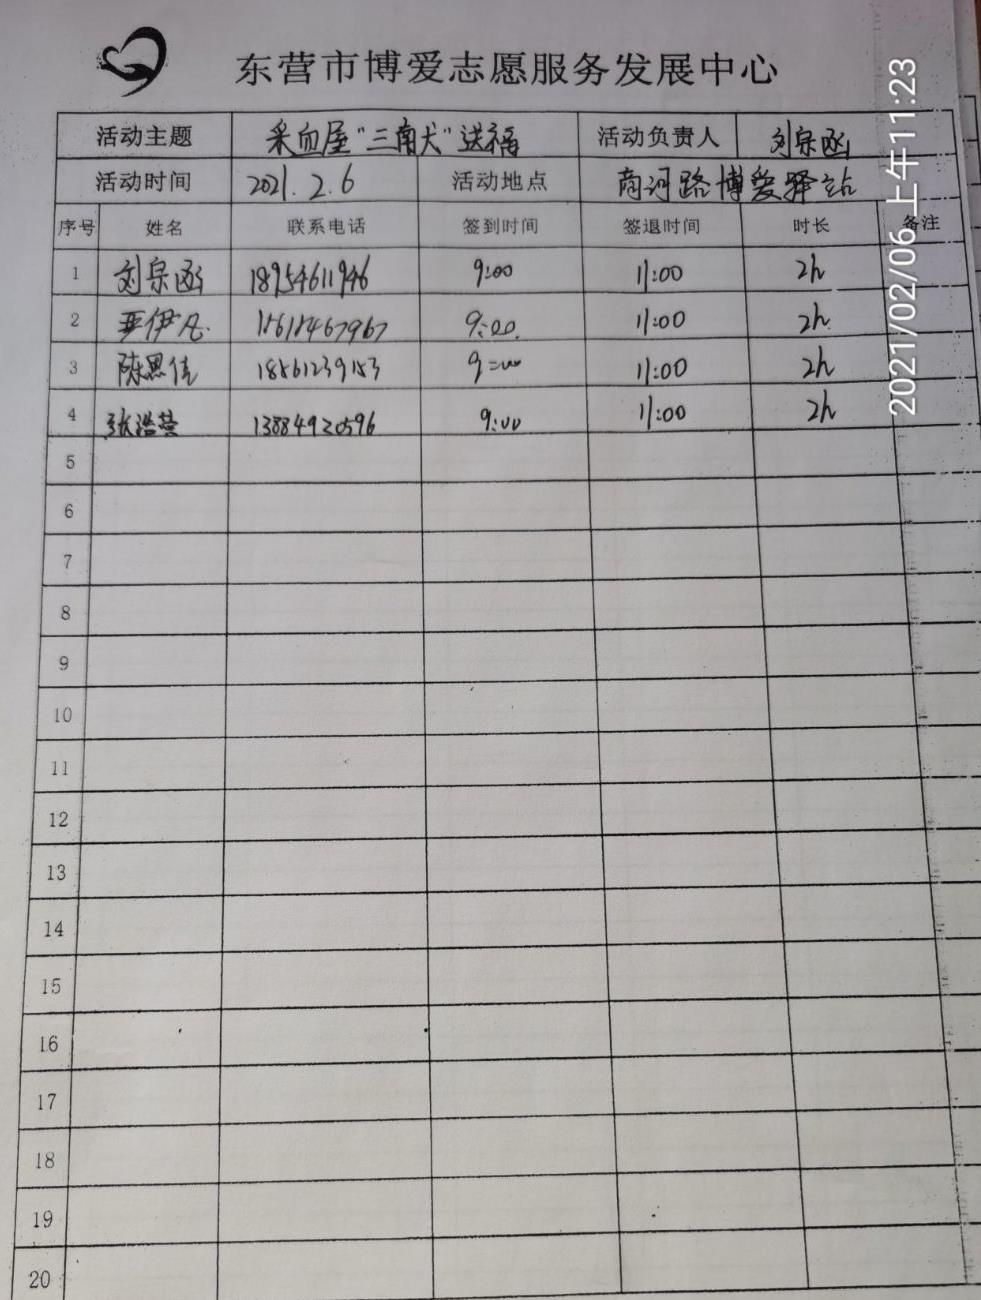 东营市博爱志愿服务发展中心
活动主题 采血屋"三南犬"送福 活动负责人 刘宗函
活动时间 2021.2.6 活动地点 商河路博爱驿站
序号 姓名 联系电话 签到时间 签退时间 时长 备注
1 刘宗函 18954611946 9:00 11:00 2h
2 伊凡 9:00 11:00 2h
3 陈思佳 18561239153 9:00 11:00 2h
4 张浩营 13884920596 9:00 11:00 2h
5
6
7
8
9
10
11
12
13
14
15
16
17
18
19
20
2021/02/06 上午11:23